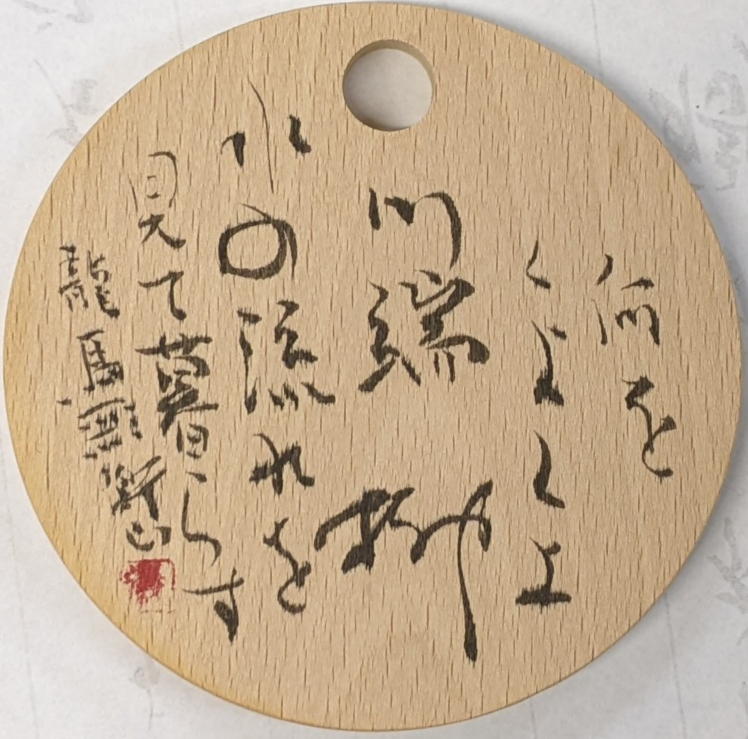 何を
くよくよ
川端柳
水の流れを
見て暮らす
龍馬